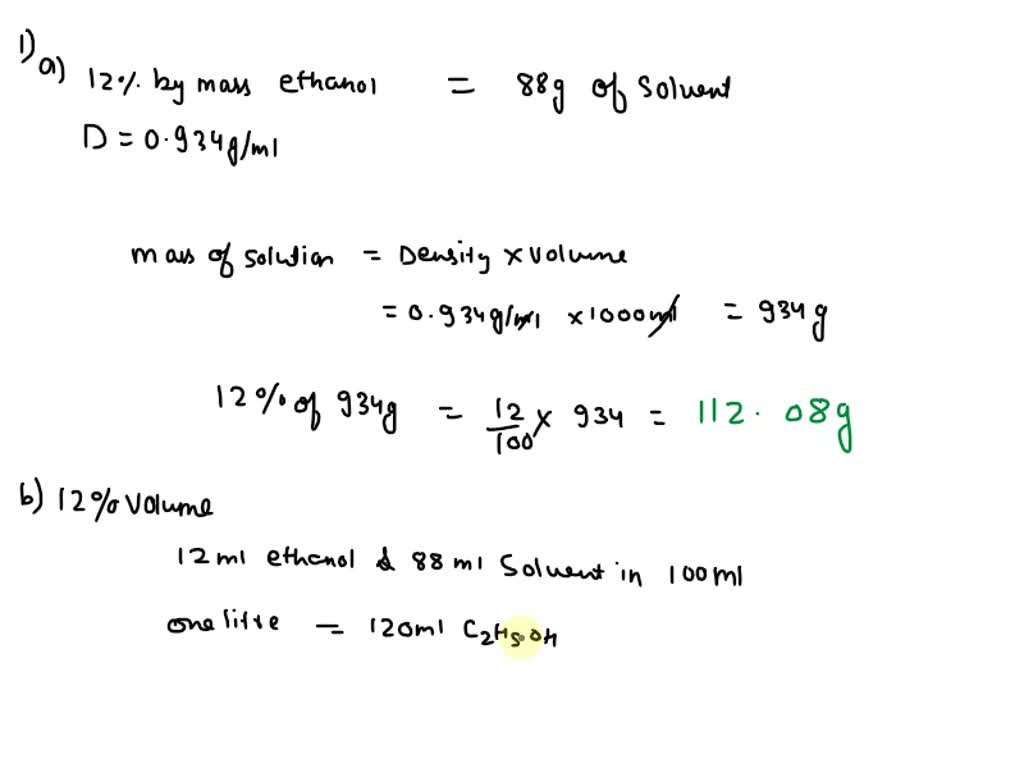 1) a) 12% by mass ethanol = 88g of solvent
D = 0.934g/ml
mass of solution = Density x volume
= 0.934g/ml x 1000ml = 934g
12% of 934g = 12/100 x 934 = 112.08g
b) 12% volume
12ml ethanol & 88ml Solvent in 100ml
one litre = 120ml C2H5OH